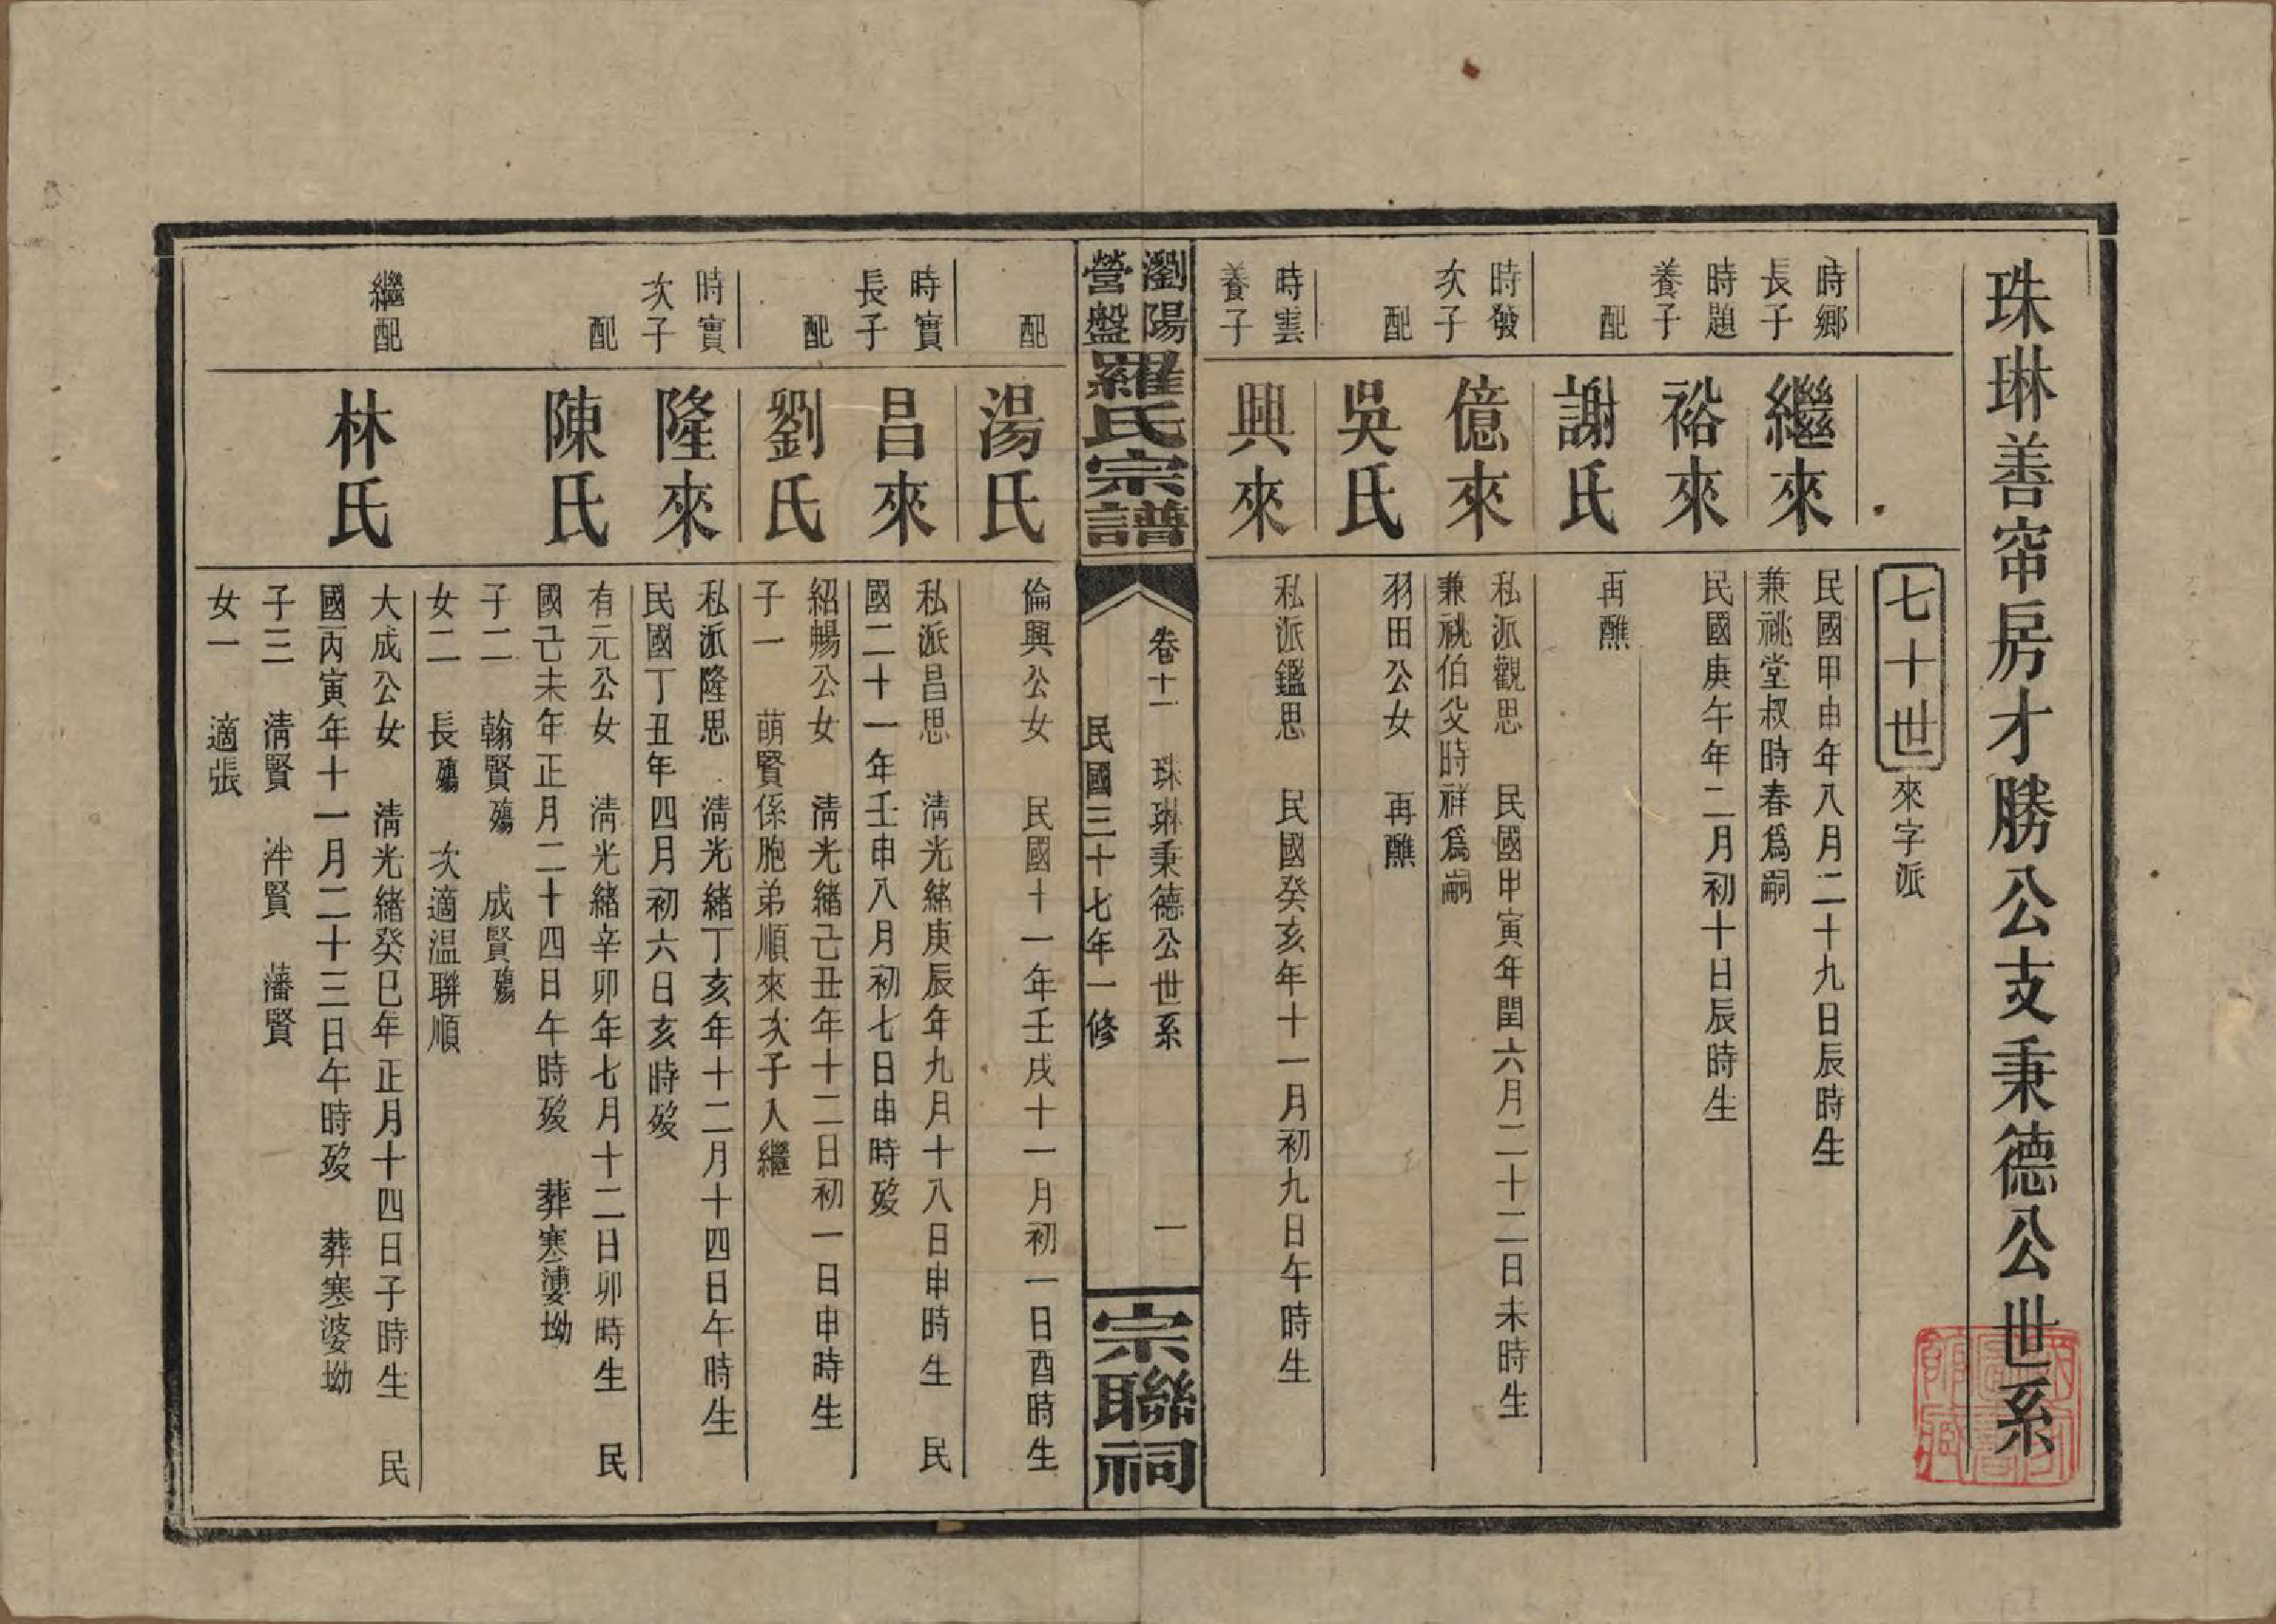 珠琳善窑房才勝公支秉德公世系
七十世 來字派
時鄉長子
繼來
民國甲申年八月二十九日辰時生
兼祧堂叔時春爲嗣
時題養子
裕來
民國庚午年二月初十日辰時生
配
謝氏
再醮
時發次子
億來
私派觀思 民國甲寅年閏六月二十二日未時生
兼祧伯父時祥爲嗣
配
吳氏
羽田公女 再醮
時雲養子
興來
私派鑑思 民國癸亥年十一月初九日午時生
瀏陽營盤羅氏宗譜
卷十一 珠琳秉德公世系 一
民國三十七年一修
宗聯祠
配
湯氏
倫興公女 民國十一年壬戌十一月初一日酉時生
時實長子
昌來
私派昌思 清光緒庚辰年九月十八日申時生 民
國二十一年壬申八月初七日申時歿
配
劉氏
紹暢公女 清光緒己丑年十二月初一日申時生
子一 萌賢係胞弟順來次子入繼
時實次子
隆來
私派隆思 清光緒丁亥年十二月十四日午時生
民國丁丑年四月初六日亥時歿
配
陳氏
有元公女 清光緒辛卯年七月十二日卯時生 民
國己未年正月二十四日午時歿 葬寒婆坳
子二 翰賢殤 成賢殤
女二 長殤 次適温聯順
繼配
林氏
大成公女 清光緒癸巳年正月十四日子時生 民
國丙寅年十一月二十三日午時歿 葬寒婆坳
子三 清賢 泮賢 藩賢
女一 適張